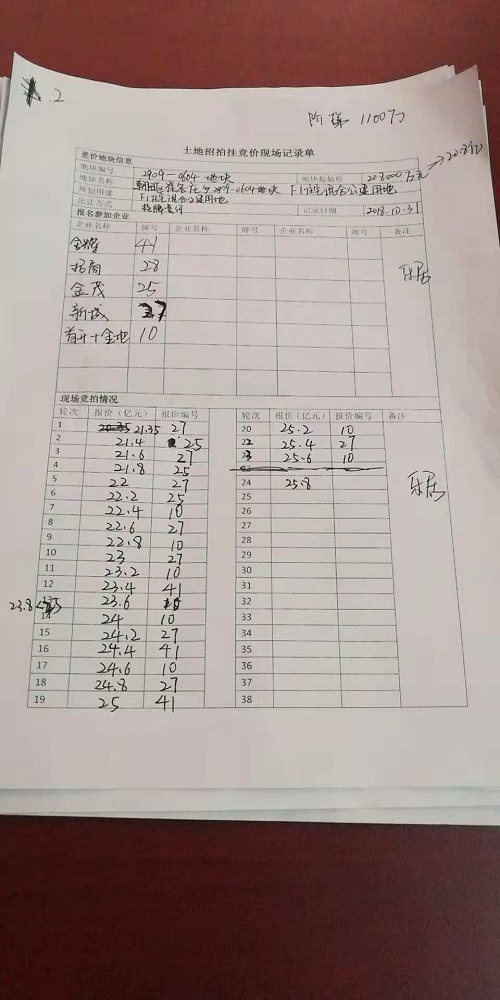 .2
1100万
土地招拍挂竞价现场记录单
竞价地块信息
地块编号 2909-0604 地块 地块起始价 208000 万元 → 20.8亿
地块名称 F1住宅混合公建用地
规划用途 F1住宅混合公建用地
出让方式 挂牌竞价 记录日期 2018.10.31
报名参加企业
企业名称 牌号 企业名称 牌号 企业名称 牌号 备注
金辉 41
招商 28
金茂 25
新城 27
首开+金地 10
乐居
现场竞拍情况
轮次 报价（亿元） 报价编号 轮次 报价（亿元） 报价编号 备注
1 21.35 27 20 25.2 10
2 21.4 25 22 25.4 27
3 21.6 27 23 25.6 10
4 21.8 25
5 22 27 24 25.8
6 22.2 25 25
7 22.4 10 26
8 22.6 27 27
9 22.8 10 28
10 23 27 29
11 23.2 10 30
12 23.4 41 31
13 23.6 32
23.8
14 24 10 33
15 24.2 27 34
16 24.4 41 35
17 24.6 10 36
18 24.8 27 37
19 25 41 38
乐居